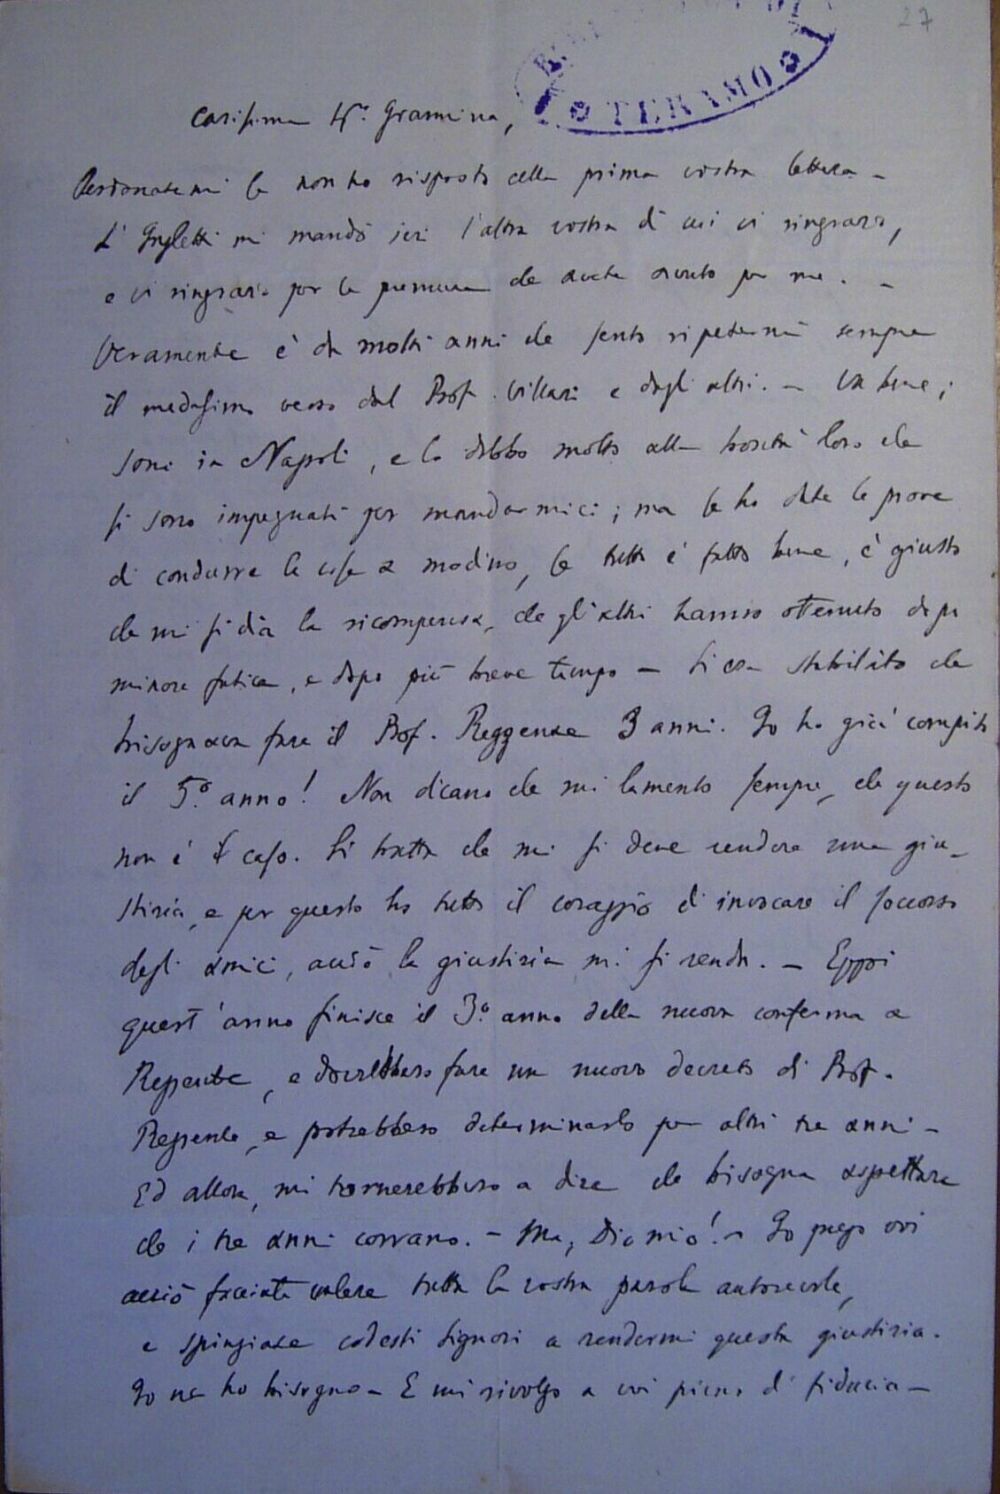 27
TERAMO
Carissima
Perdonatemi se non ho risposto alla prima vostra lettera –
mi mandò ieri l'altra vostra di cui vi ringrazio,
e vi ringrazio per la premura che avete avuto per me. –
Veramente è da molti anni che sento ripetermi sempre
il medesimo verso dal Prof. Villari e dagli altri. – Va bene;
sono in Napoli, e lo debbo molto alla bontà loro che
si sono impegnati per mandarmici; ma se ho date le prove
di condurre le cose a modino, se tutto è fatto bene, è giusto
che mi si dia la ricompensa, che gli altri hanno ottenuto dopo
minore fatica, e dopo più breve tempo – Si era stabilito che
bisognava fare il Prof. Reggente 3 anni. Io ho già compito
il 5.º anno! Non dicano che mi lamento sempre, che questo
non è il caso. Si tratta che mi si deve rendere una giu-
stizia, e per questo ho tutto il coraggio di invocare il soccorso
degli amici, acciò la giustizia mi si renda. – Eppoi
quest'anno finisce il 3.º anno della nuova conferma a
Reggente, e dovrebbero fare un nuovo decreto di Prof.
Reggente, e potrebbero determinarlo per altri tre anni –
Ed allora, mi tornerebbero a dire che bisogna aspettare
che i tre anni corrano. – Ma, Dio mio! – Io prego voi
acciò facciate valere tutta la vostra parola autorevole,
e spingiate codesti signori a rendermi questa giustizia.
Io ne ho bisogno – E mi rivolgo a voi pieno di fiducia –